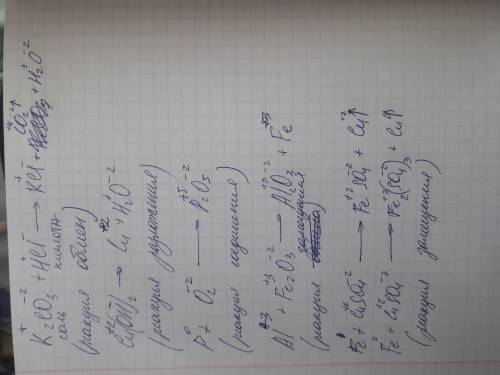 K₂⁺CO₃⁻² + H⁺Cl⁻ → K⁺Cl⁻ + C⁺⁴O₂⁻²↑ + H₂⁺O⁻²
соль кислота
(реакция обмен)
Cu⁺²(OH)₂⁻ → Cu⁺² + H₂⁺O⁻²
(реакция разложения)
P⁰ + O₂⁻² → P₂⁺⁵O₅⁻²
(реакция соединения)
Al⁺³ + Fe₂⁺³O₃⁻² → Al₂⁺³O₃⁻² + Fe⁺³
(реакция замещения)
Fe⁰ + Cu⁺²SO₄⁻² → Fe⁺²SO₄⁻² + Cu↑
Fe⁰ + Cu⁺²SO₄⁻² → Fe₂(SO₄)₃⁻² + Cu↑
(реакция замещения)